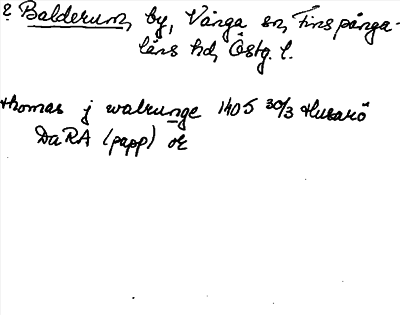 ? Balderum, by, Vånga sn, Finspånga-
läns hd, Östg. l.
thomas j walrunge 1405 30/3 Husarö
DaRA (papp) or